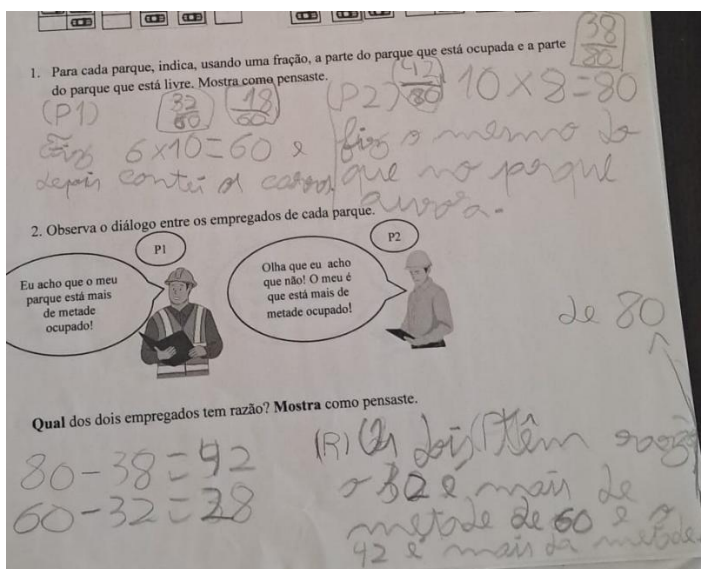 1. Para cada parque, indica, usando uma fração, a parte do parque que está ocupada e a parte
do parque que está livre. Mostra como pensaste.
38/80
(P1) 32/60 18/60
Fiz 6x10=60 e
depois contei os carros
(P2) 42/80 10x8=80
fiz o mesmo do
que no parque
aurora.
2. Observa o diálogo entre os empregados de cada parque.
P1
Eu acho que o meu
parque está mais
de metade
ocupado!
P2
Olha que eu acho
que não! O meu é
que está mais de
metade ocupado!
de 80
Qual dos dois empregados tem razão? Mostra como pensaste.
80-38=42
60-32=28
(R) Os dois têm razão
o 32 é mais de
metade de 60 e o
42 é mais da metade